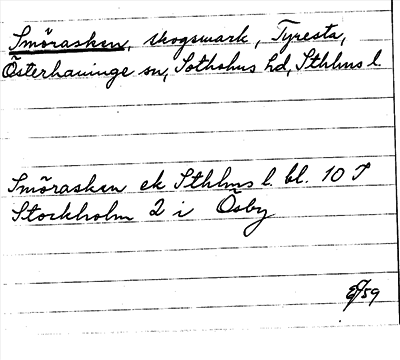 Smörasken, skogsmark, Tyresta,
Österhaninge sn, Sotholms hd, Sthlms l.
Smörasken ek Sthlms l. bl. 10 T
Stockholm 2 i Ösby
59